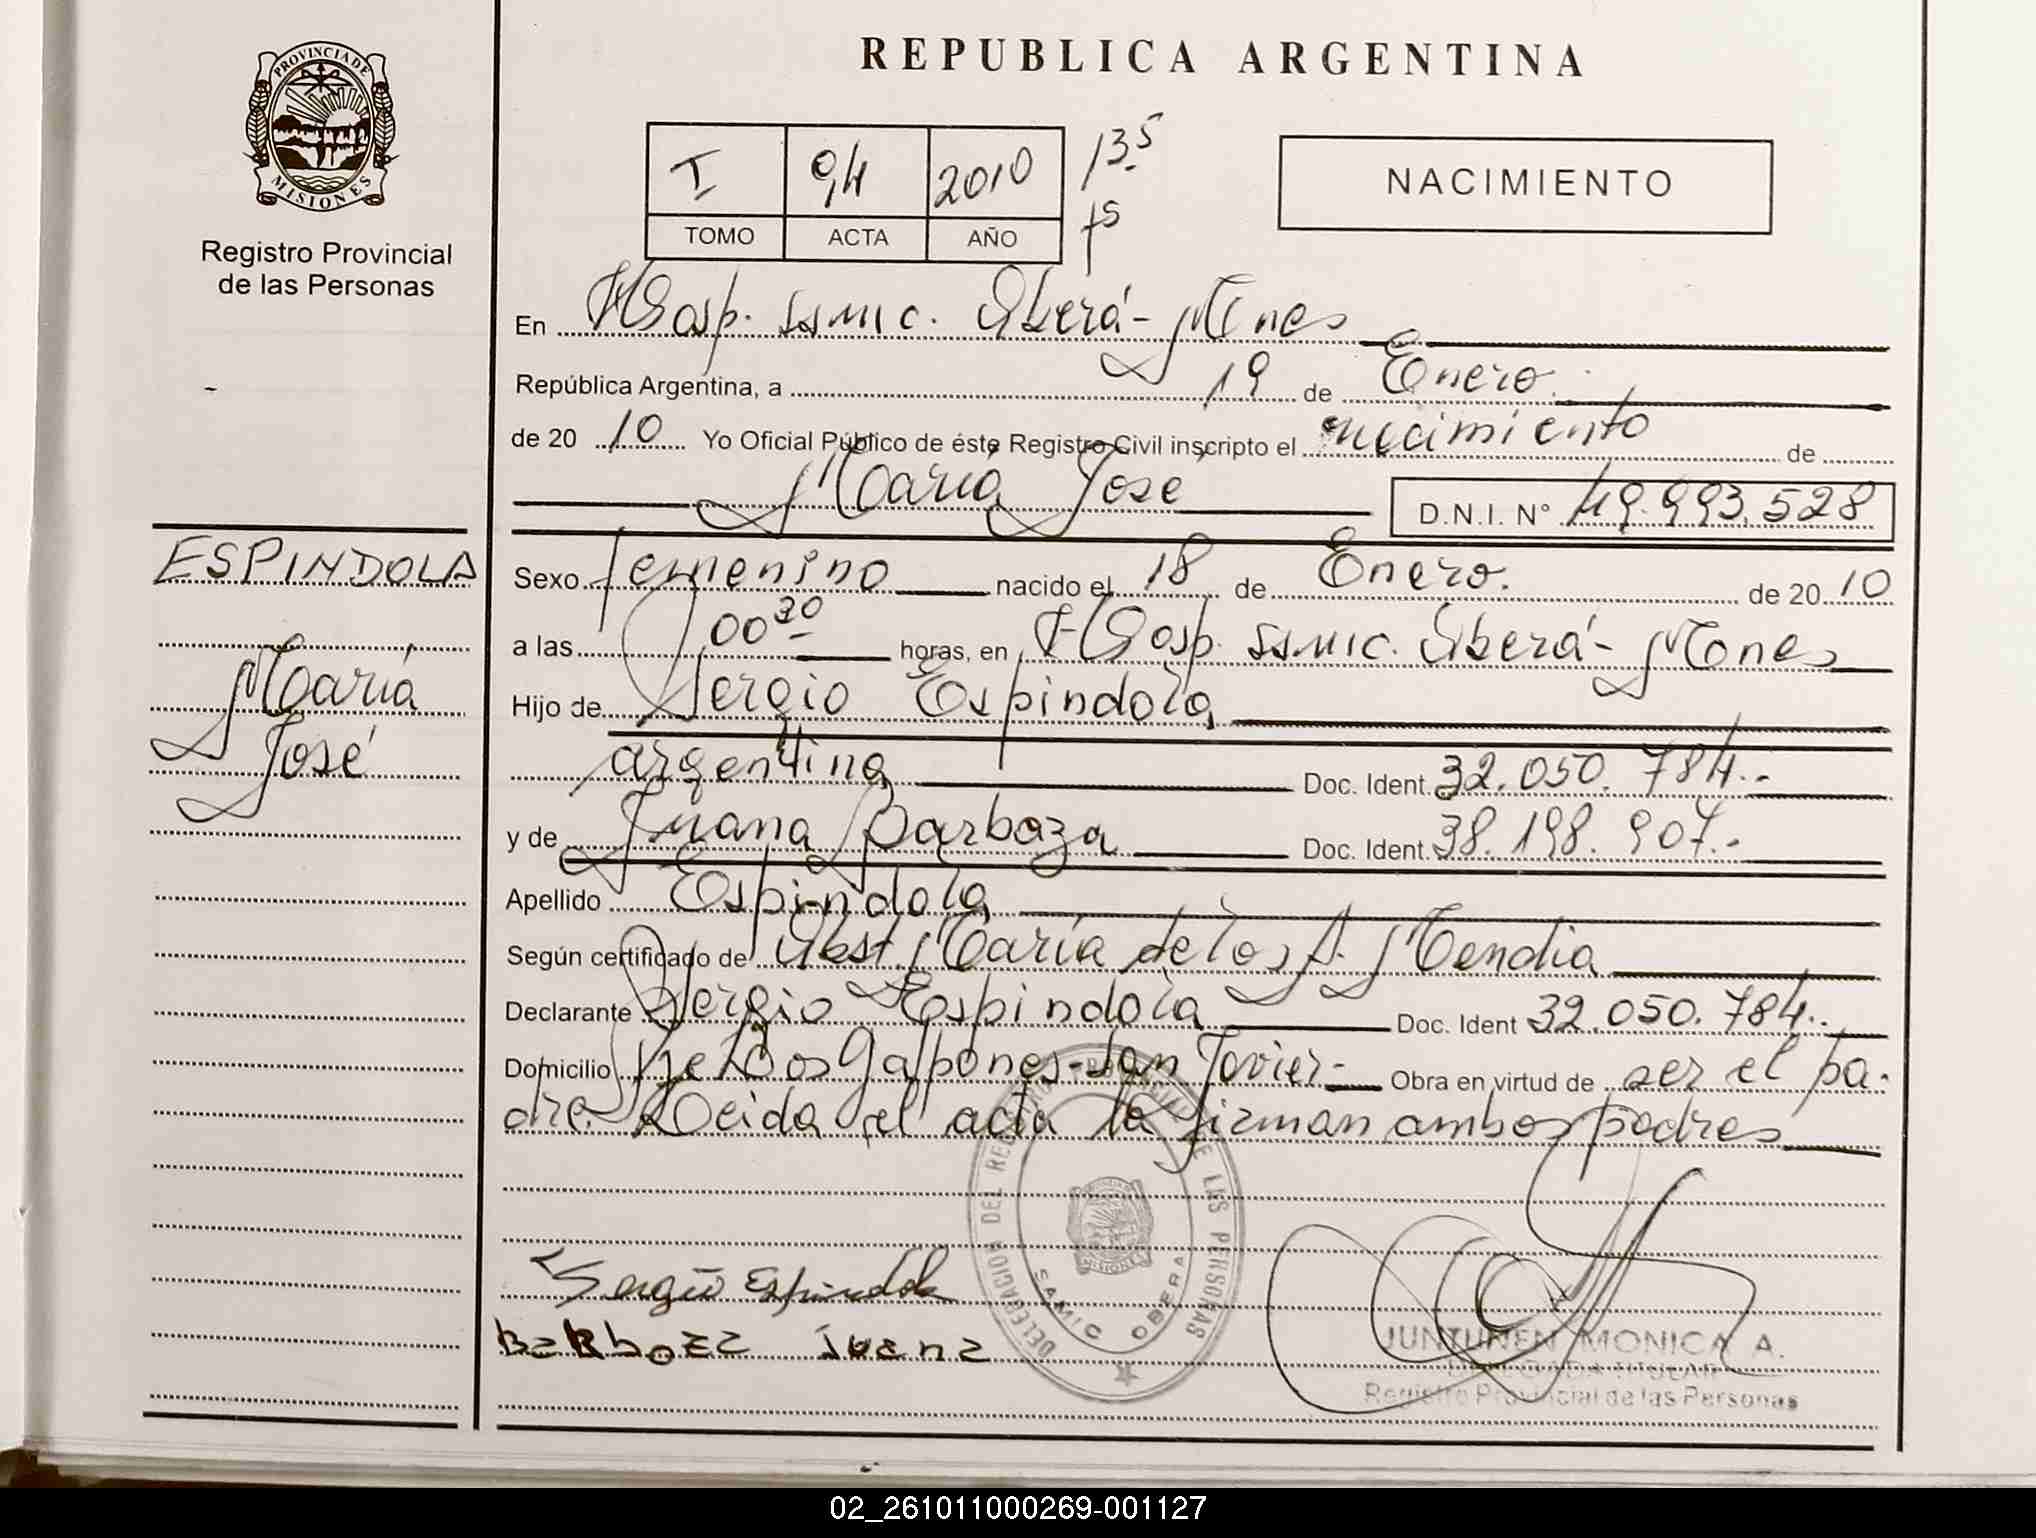 PROVINCIA DE
MISIONES
Registro Provincial
de las Personas
ESPINDOLA
María
José
REPUBLICA ARGENTINA
I 94 2010 13 5
TOMO ACTA AÑO 15
NACIMIENTO
En Hosp. ssmic. Oberá- Mnes
República Argentina, a 19 de Enero.
de 20 10 Yo Oficial Público de éste Registro Civil inscripto el nacimiento de
María José D.N.I. N° 49.993.528
Sexo femenino nacido el 18 de Enero. de 20 10
a las 00 30 horas, en Hosp. ssmic. Oberá- Mones
Hijo de Sergio Espindola
argentina Doc. Ident. 32.050.784.-
y de Juana Barboza Doc. Ident. 38.198.907.-
Apellido Espindola
Según certificado de Obst. María de los A. Mendia
Declarante Sergio Espindola Doc. Ident 32.050.784.
Domicilio Los Galpones-San Javier- Obra en virtud de ser el pa-
dre. Leida el acta la firman ambos padres
Sergio Espindola
BarbozA juana
DELEGACION DEL REGISTRO PROVINCIAL DE LAS PERSONAS
MISIONES
SAMIC OBERA
JUNTUNEN MONICA A.
DELEGADA TITULAR
Registro Provincial de las Personas
02_261011000269-001127